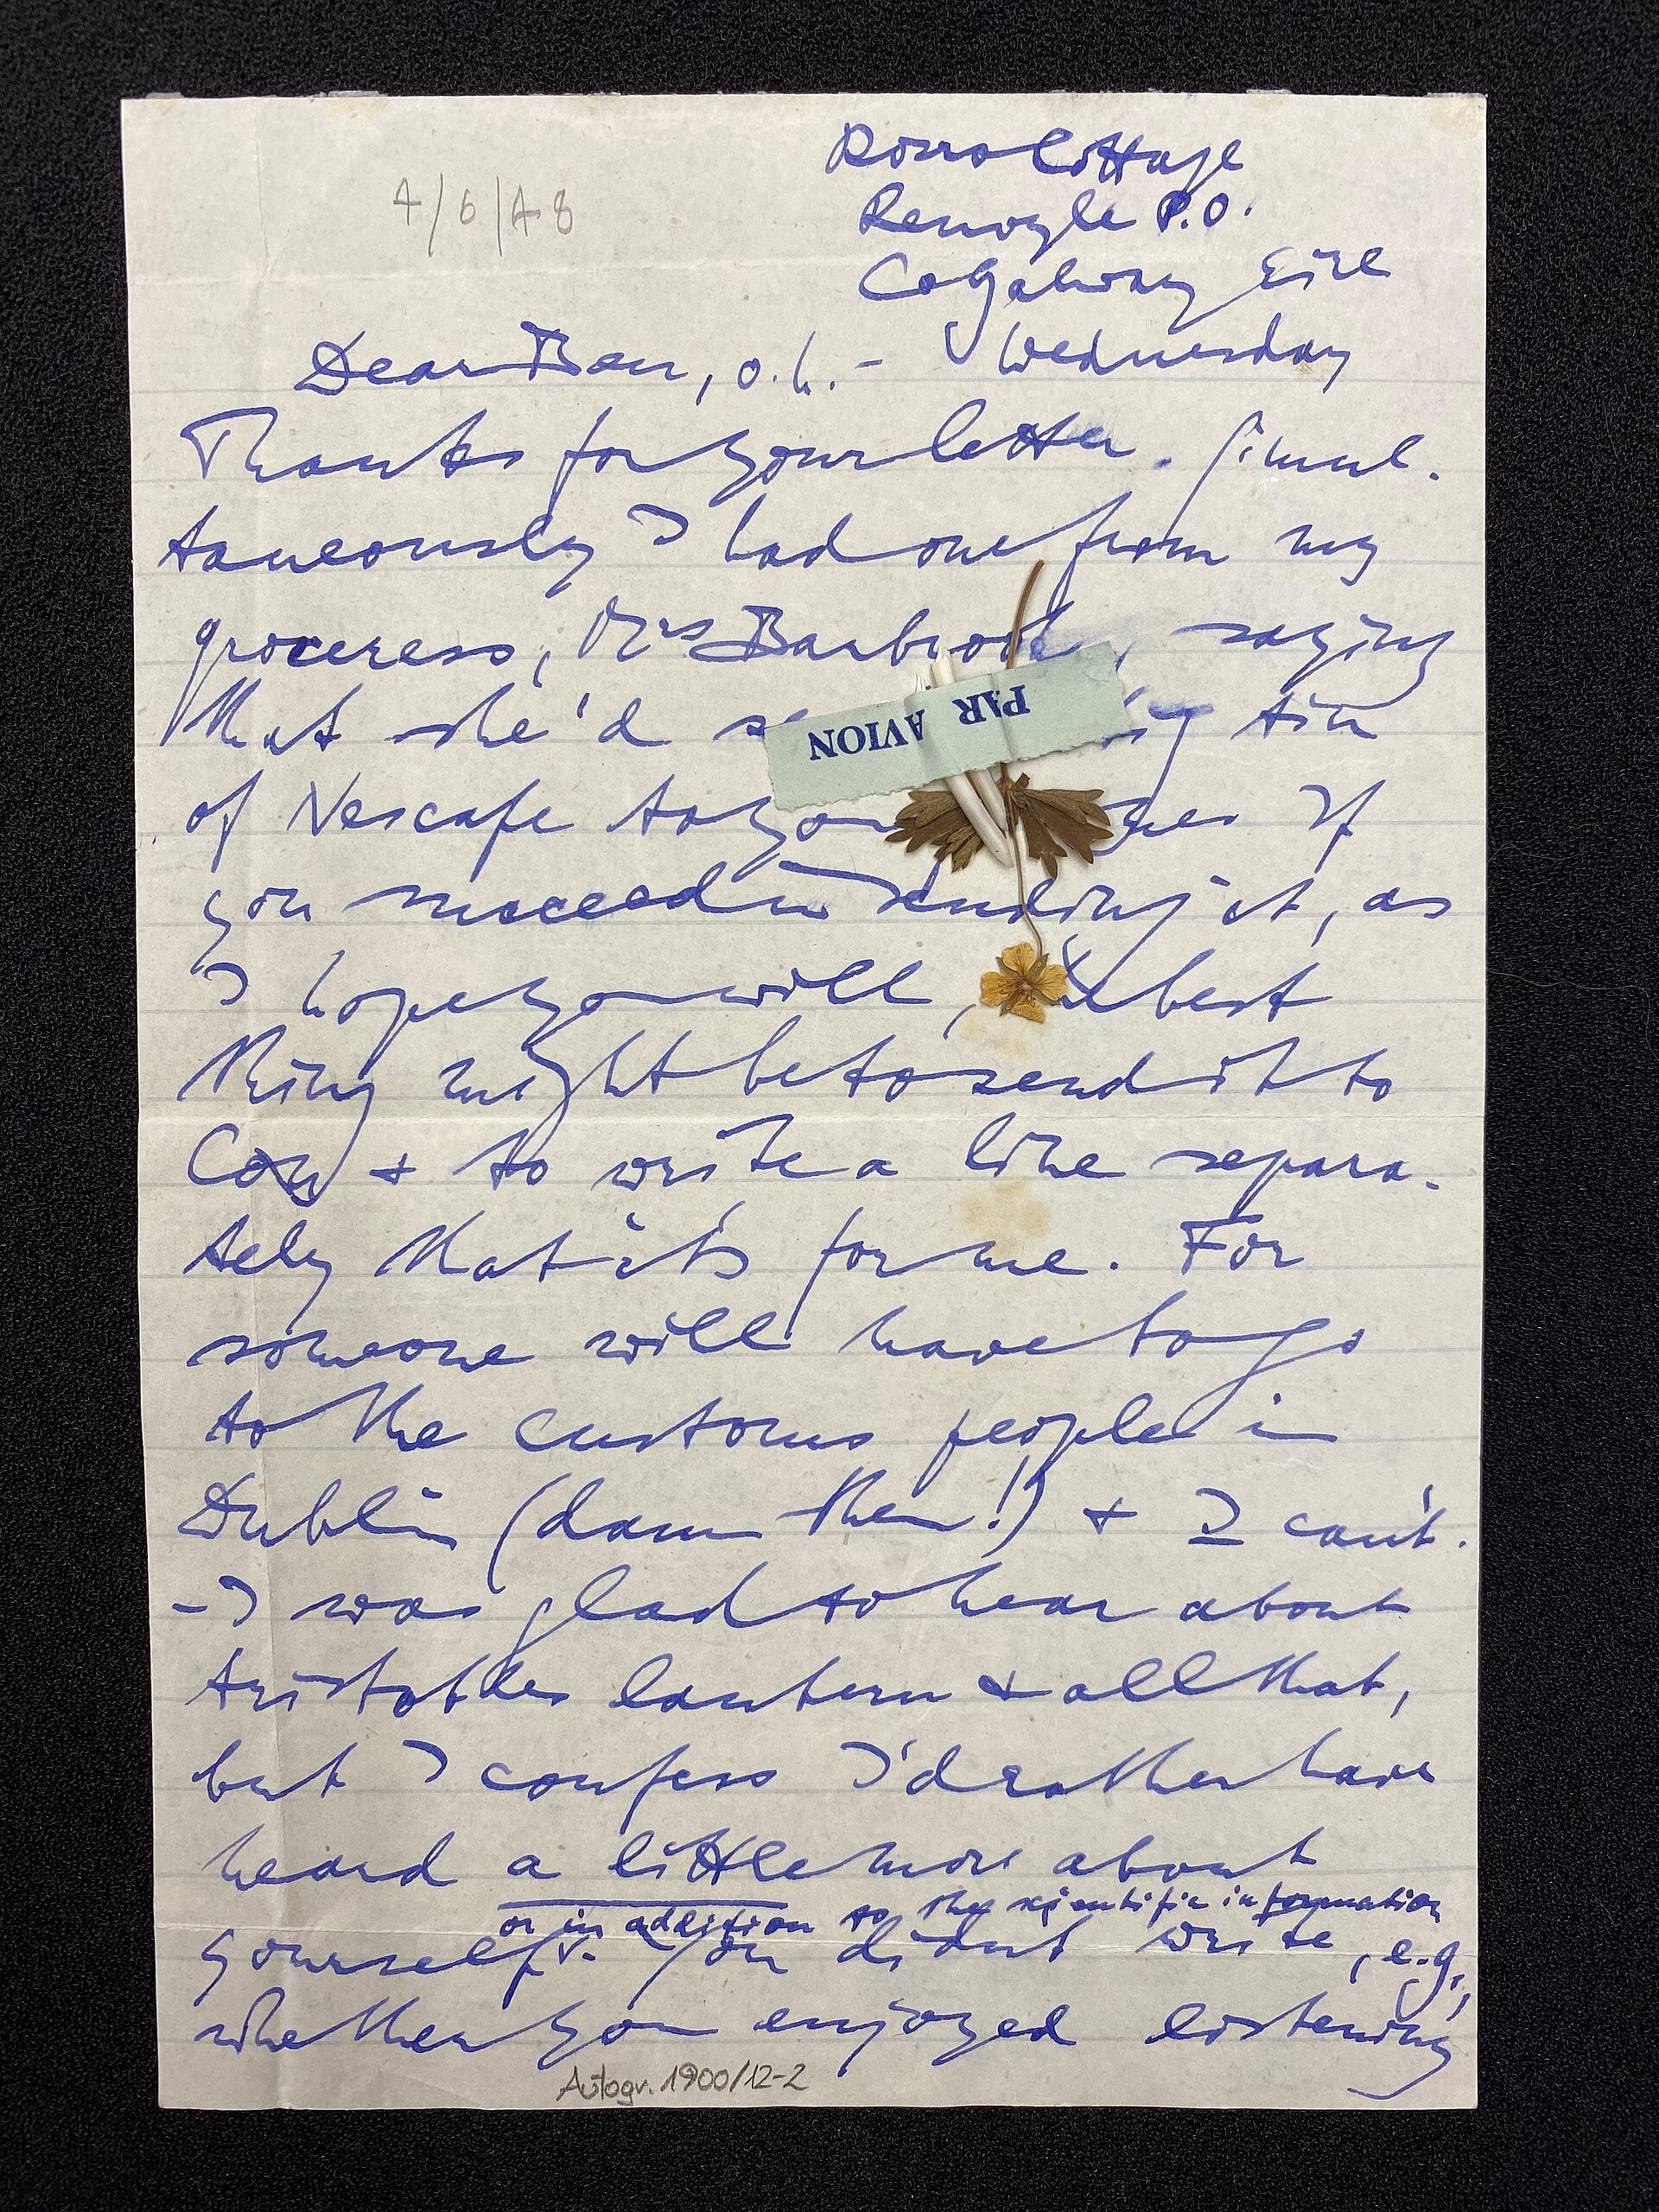 Rosro Cottage
4/6/48
Renvyle P.O.
Co Galway Eire
Wednesday
Dear Ben, o.h. –
Thanks for your letter. Simul-
taneously I had one from my
groceress, Mrs Barbrooke, saying
that she'd big tin
PAR AVION
of Nescafe to you. If
you succeed in sending it, as
I hope you will, the best
thing might be to send it to
Con & to write a line separa-
tely that it's for me. For
someone will have to go
to the customs people in
Dublin (damn them!) & I can't.
– I was glad to hear about
Aristotles lantern & all that,
but I confess I'd rather have
heard a little more about
or in addition to the scientific information
yourself. You didn't write, e.g.,
whether you enjoyed listening
Autogr. 1900/12-2